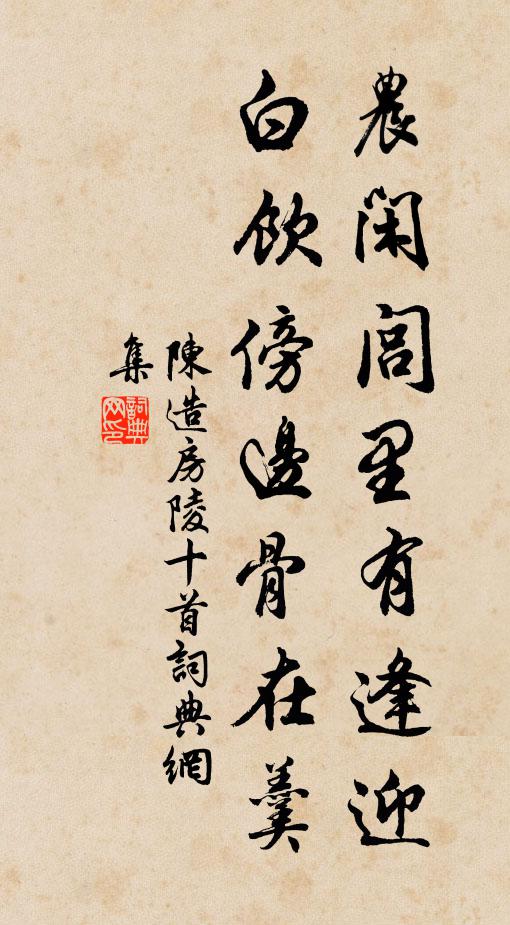 農閑閭里有逢迎
白飲傍邊骨在羹
陳造房陵十首詞典網
集
詞典网印